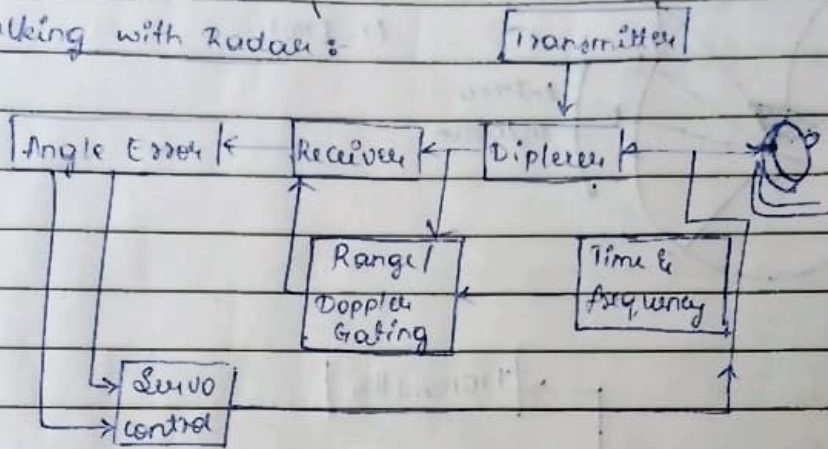 cking with Radar :
Transmitter
Angle Error
Receiver
Diplexer
Range/
Doppler
Gating
Time &
frequency
Servo
control